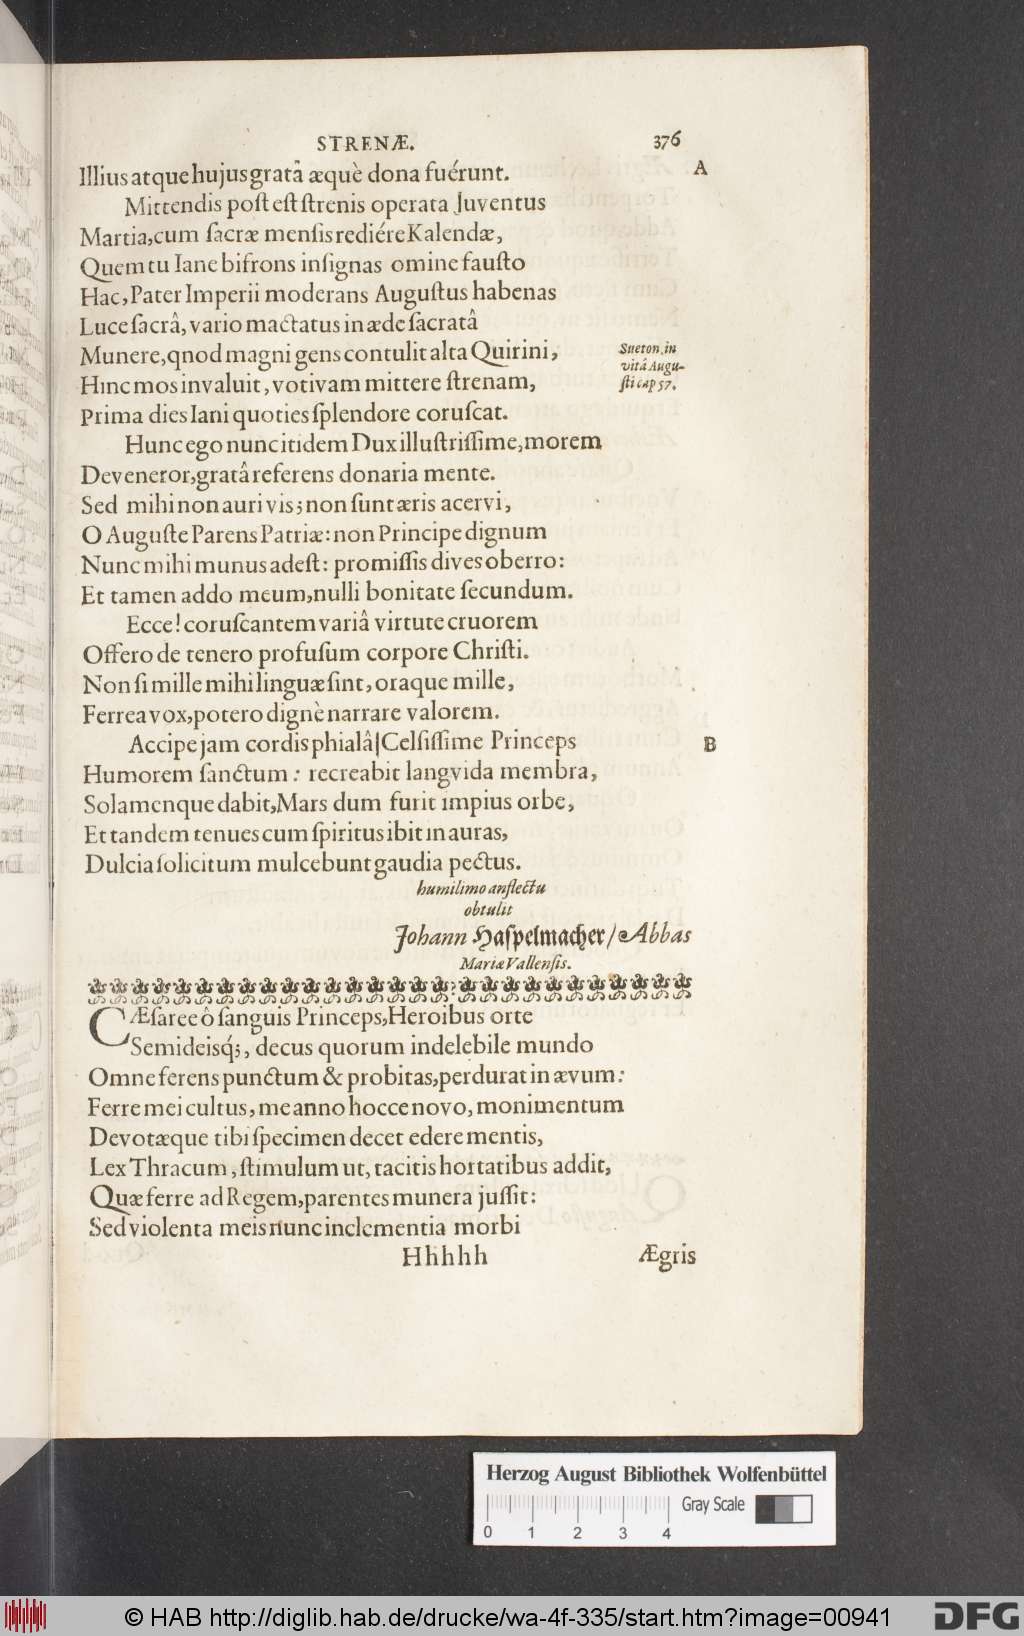 STRENÆ. 376
Illius atque hujus gratâ æquè dona fuérunt. A
Mittendis post est strenis operata Juventus
Martia, cum sacræ mensis rediére Kalendæ,
Quem tu Iane bifrons insignas omine fausto
Hac, Pater Imperii moderans Augustus habenas
Luce sacrâ, vario mactatus in æde sacratâ
Munere, qnod magni gens contulit alta Quirini,
Hinc mos invaluit, votivam mittere strenam,
Prima dies Iani quoties splendore coruscat.
Sueton. in
vitâ Augu-
sti cap 57.
Hunc ego nunc itidem Dux illustrissime, morem
Deveneror, gratâ referens donaria mente.
Sed mihi non auri vis; non sunt æris acervi,
O Auguste Parens Patriæ: non Principe dignum
Nunc mihi munus adest: promissis dives oberro:
Et tamen addo meum, nulli bonitate secundum.
Ecce! coruscantem variâ virtute cruorem
Offero de tenero profusum corpore Christi.
Non si mille mihi linguæ sint, oraque mille,
Ferrea vox, potero dignè narrare valorem.
Accipe jam cordis phialâ| Celsissime Princeps B
Humorem sanctum: recreabit langvida membra,
Solamenque dabit, Mars dum furit impius orbe,
Et tandem tenues cum spiritus ibit in auras,
Dulcia solicitum mulcebunt gaudia pectus.
humilimo anflectu
obtulit
Johann Haspelmacher/ Abbas
Mariæ Vallensis.
CÆsaree ô sanguis Princeps, Heroibus orte
Semideisq́;, decus quorum indelebile mundo
Omne ferens punctum & probitas, perdurat in ævum:
Ferre mei cultus, me anno hocce novo, monimentum
Devotæque tibi specimen decet edere mentis,
Lex Thracum, stimulum ut, tacitis hortatibus addit,
Quæ ferre ad Regem, parentes munera jussit:
Sed violenta meis nunc inclementia morbi
Hhhhh Ægris
Herzog August Bibliothek Wolfenbüttel
Gray Scale
0 1 2 3 4
© HAB http://diglib.hab.de/drucke/wa-4f-335/start.htm?image=00941 DFG